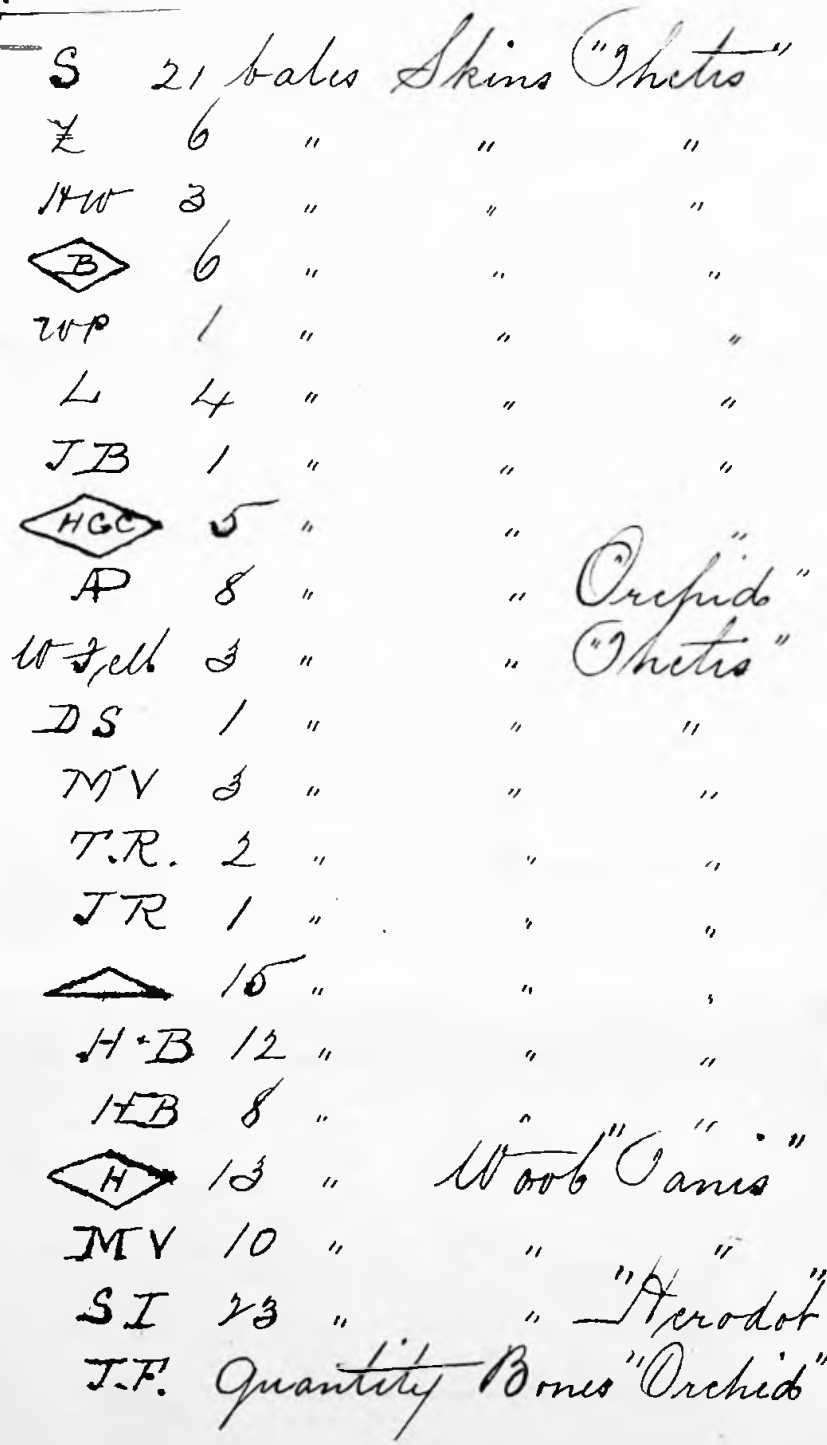 S 21 bales Skins "Thetis"
Z 6 " " "
HW 3 " " "
B 6 " " "
WP 1 " " "
L 4 " " "
JB 1 " " "
HGC 5 " " "
AP 8 " " Orchid"
W Fell 3 " " "Thetis"
DS 1 " " "
MV 3 " " "
T.R. 2 " " "
JR 1 " " "
15 " " "
H·B 12 " " "
HB 8 " " "
H 13 " Wool "Tanis"
MV 10 " " "
SI 23 " " "Herodot"
J.F. Quantity Bones "Orchid"